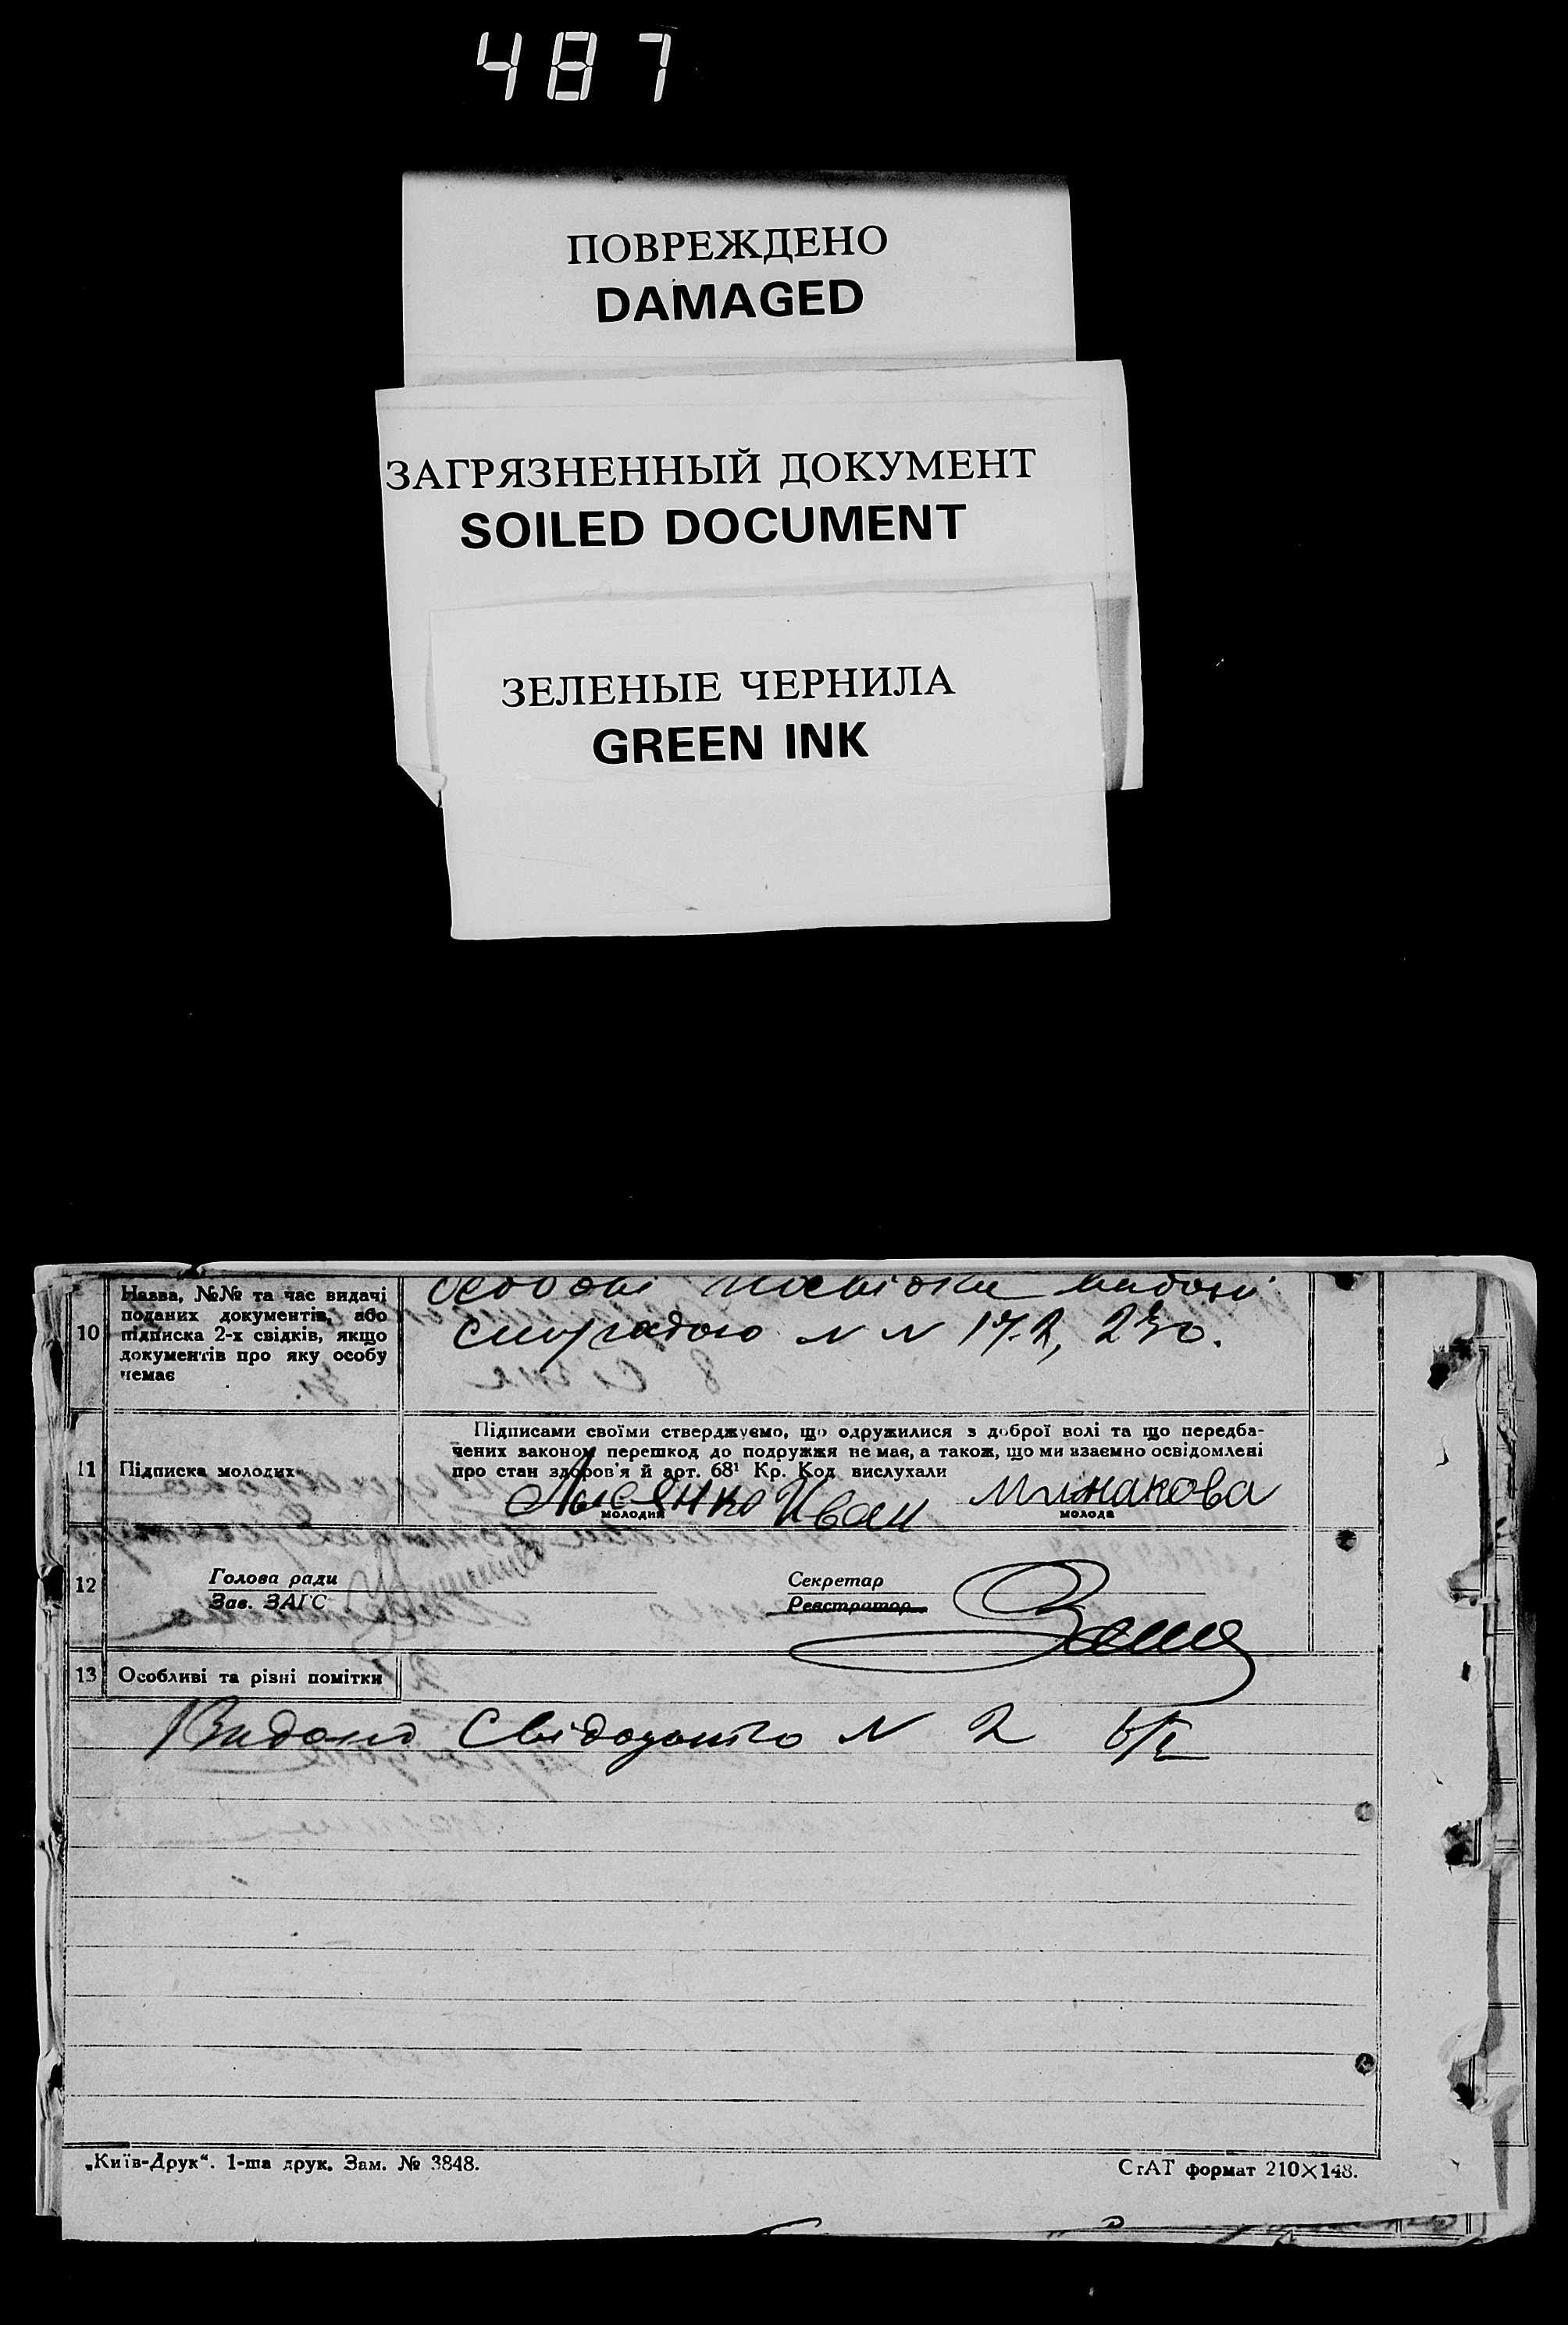 487
ПОВРЕЖДЕНО
DAMAGED
ЗАГРЯЗНЕННЫЙ ДОКУМЕНТ
SOILED DOCUMENT
ЗЕЛЕНЫЕ ЧЕРНИЛА
GREEN INK
10
Назва, №№ та час видачі
поданих документів, або
підписка 2-х свідків, якщо
документів про яку особу
немає
посвідки видані
сільрадою N N 172, 230.
11
Підписка молодих
Підписами своїми стверджуємо, що одружилися з доброї волі та що передба-
чених законом перешкод до подружжя немає, а також, що ми взаємно освідомлені
про стан здоров'я й арт. 68¹ Кр. Код вислухали
Лысянко Иван Минакова
молодий молода
12
Голова ради
Зав. ЗАГС
Секретар
Реєстратор
13 Особливі та різні помітки
Видано Свідоцтво N 2
„Київ-Друк“. 1-ша друк. Зам. № 3848.
СтАТ формат 210×148.